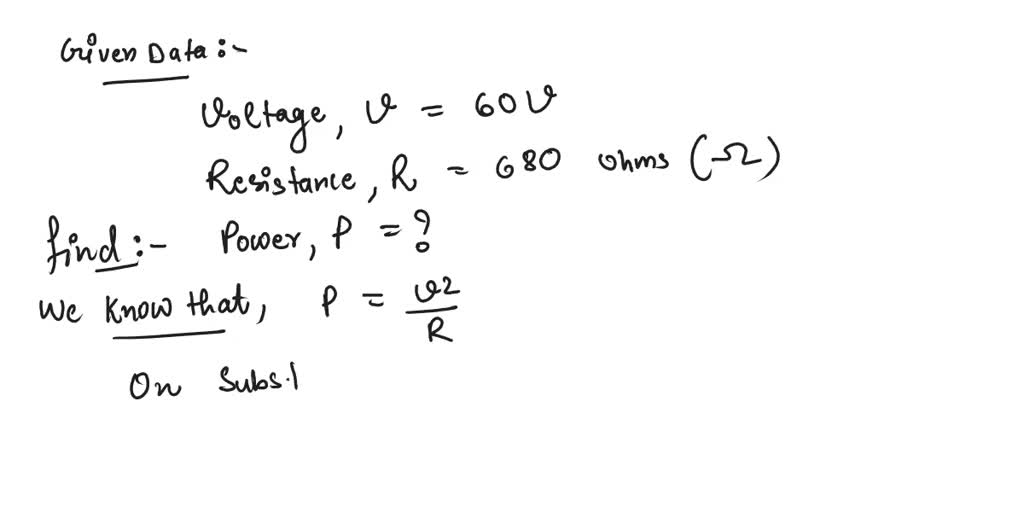 Given Data:-
Voltage, V = 60V
Resistance, R = 680 ohms (Ω)
find:- Power, P = ?
We Know that, P = V2/R
On Subst